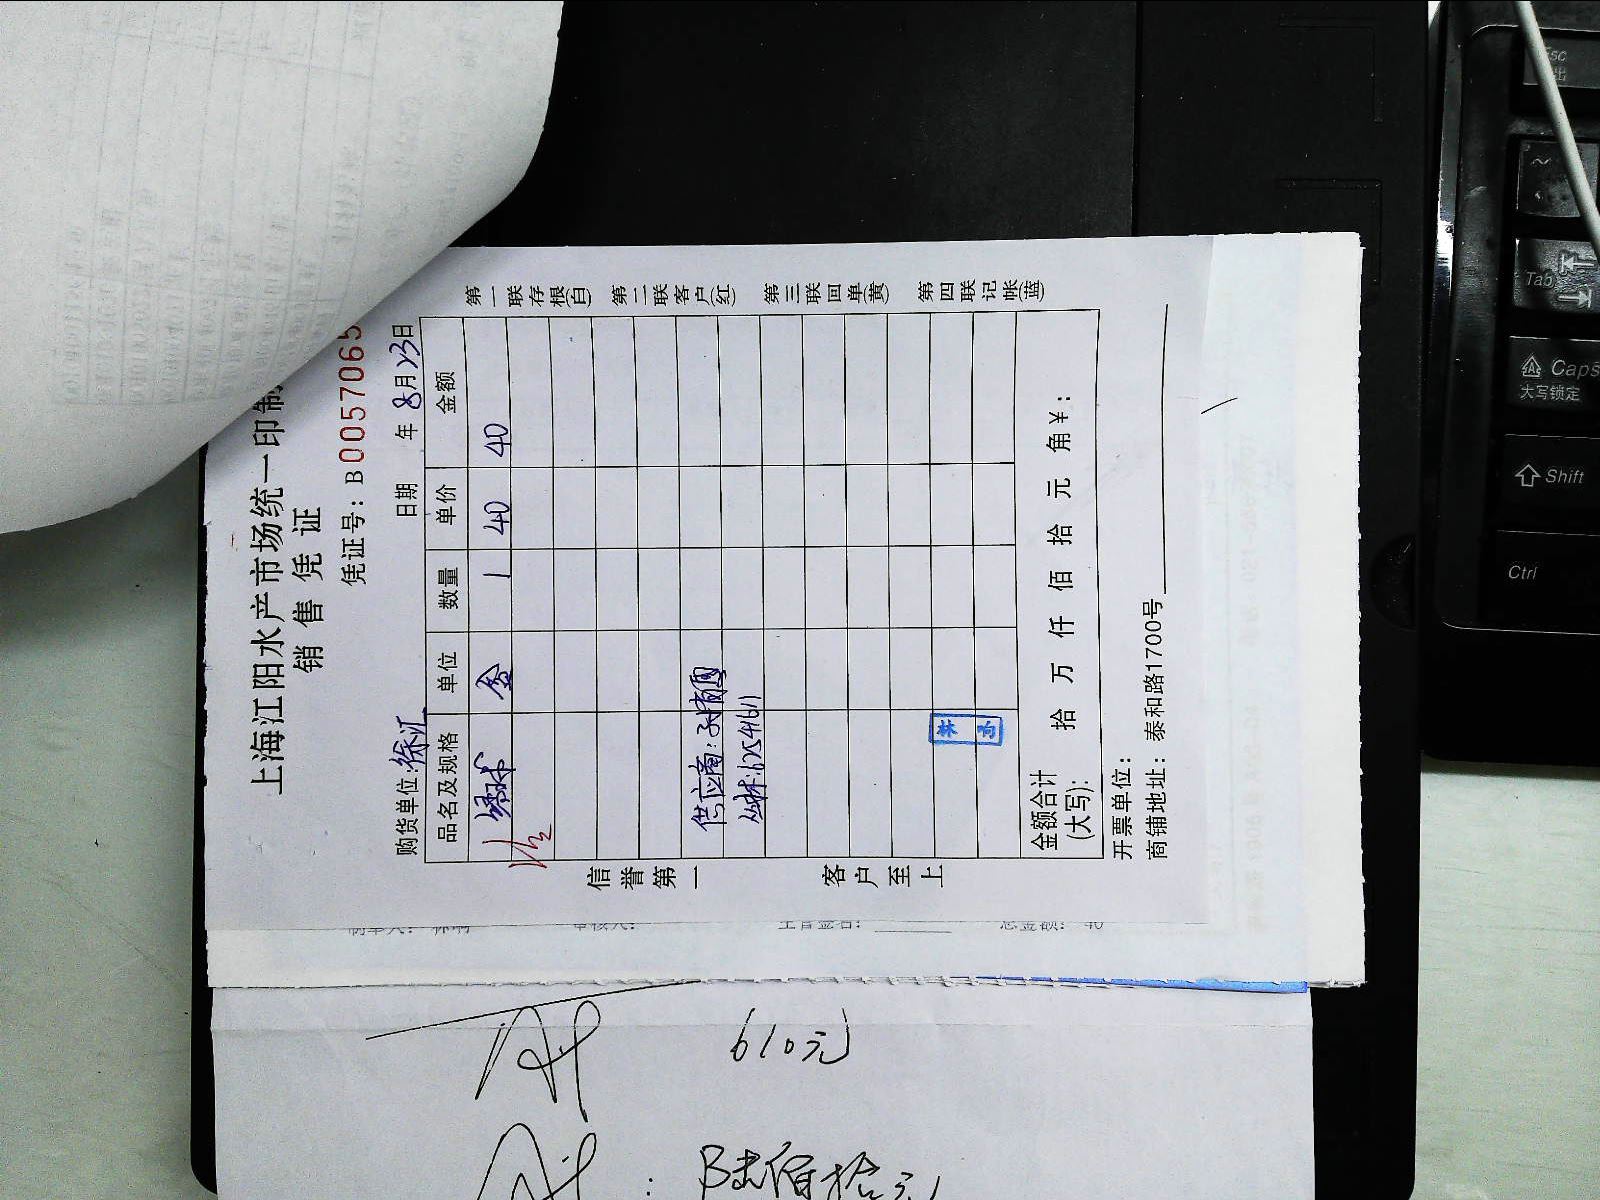 上海江阳水产市场统一印制
销售凭证
凭证号：B0057065
购货单位：徐汇 日期 年 8月23日
品名及规格 单位 数量 单价 金额
1 40 40
供应商：
信誉第一 客户至上
金额合计
(大写)： 拾 万 仟 佰 拾 元 角 ￥：
开票单位：
商铺地址： 泰和路1700号
第一联存根(白) 第二联客户(红) 第三联回单(黄) 第四联记帐(蓝)
总金额： 40
610元
陆佰拾元
Esc
Tab
Caps
大写锁定
Shift
Ctrl